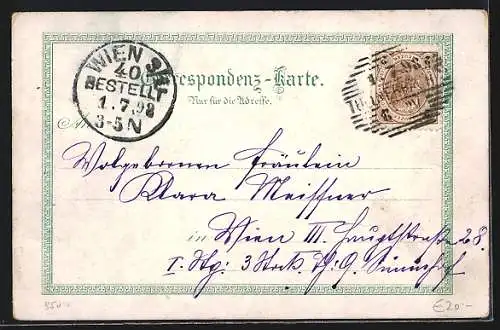 WIEN 3/1
40
BESTELLT
1.7.98
3-5N
Correspondenz-Karte.
Nur für die Adresse.
An
Wolgebornen Fräulein
Klara Meissner
in Wien III. Hauptstraße 28.
I. Stg: 3 Stck. Th: 9. Sünnhof
€20.-